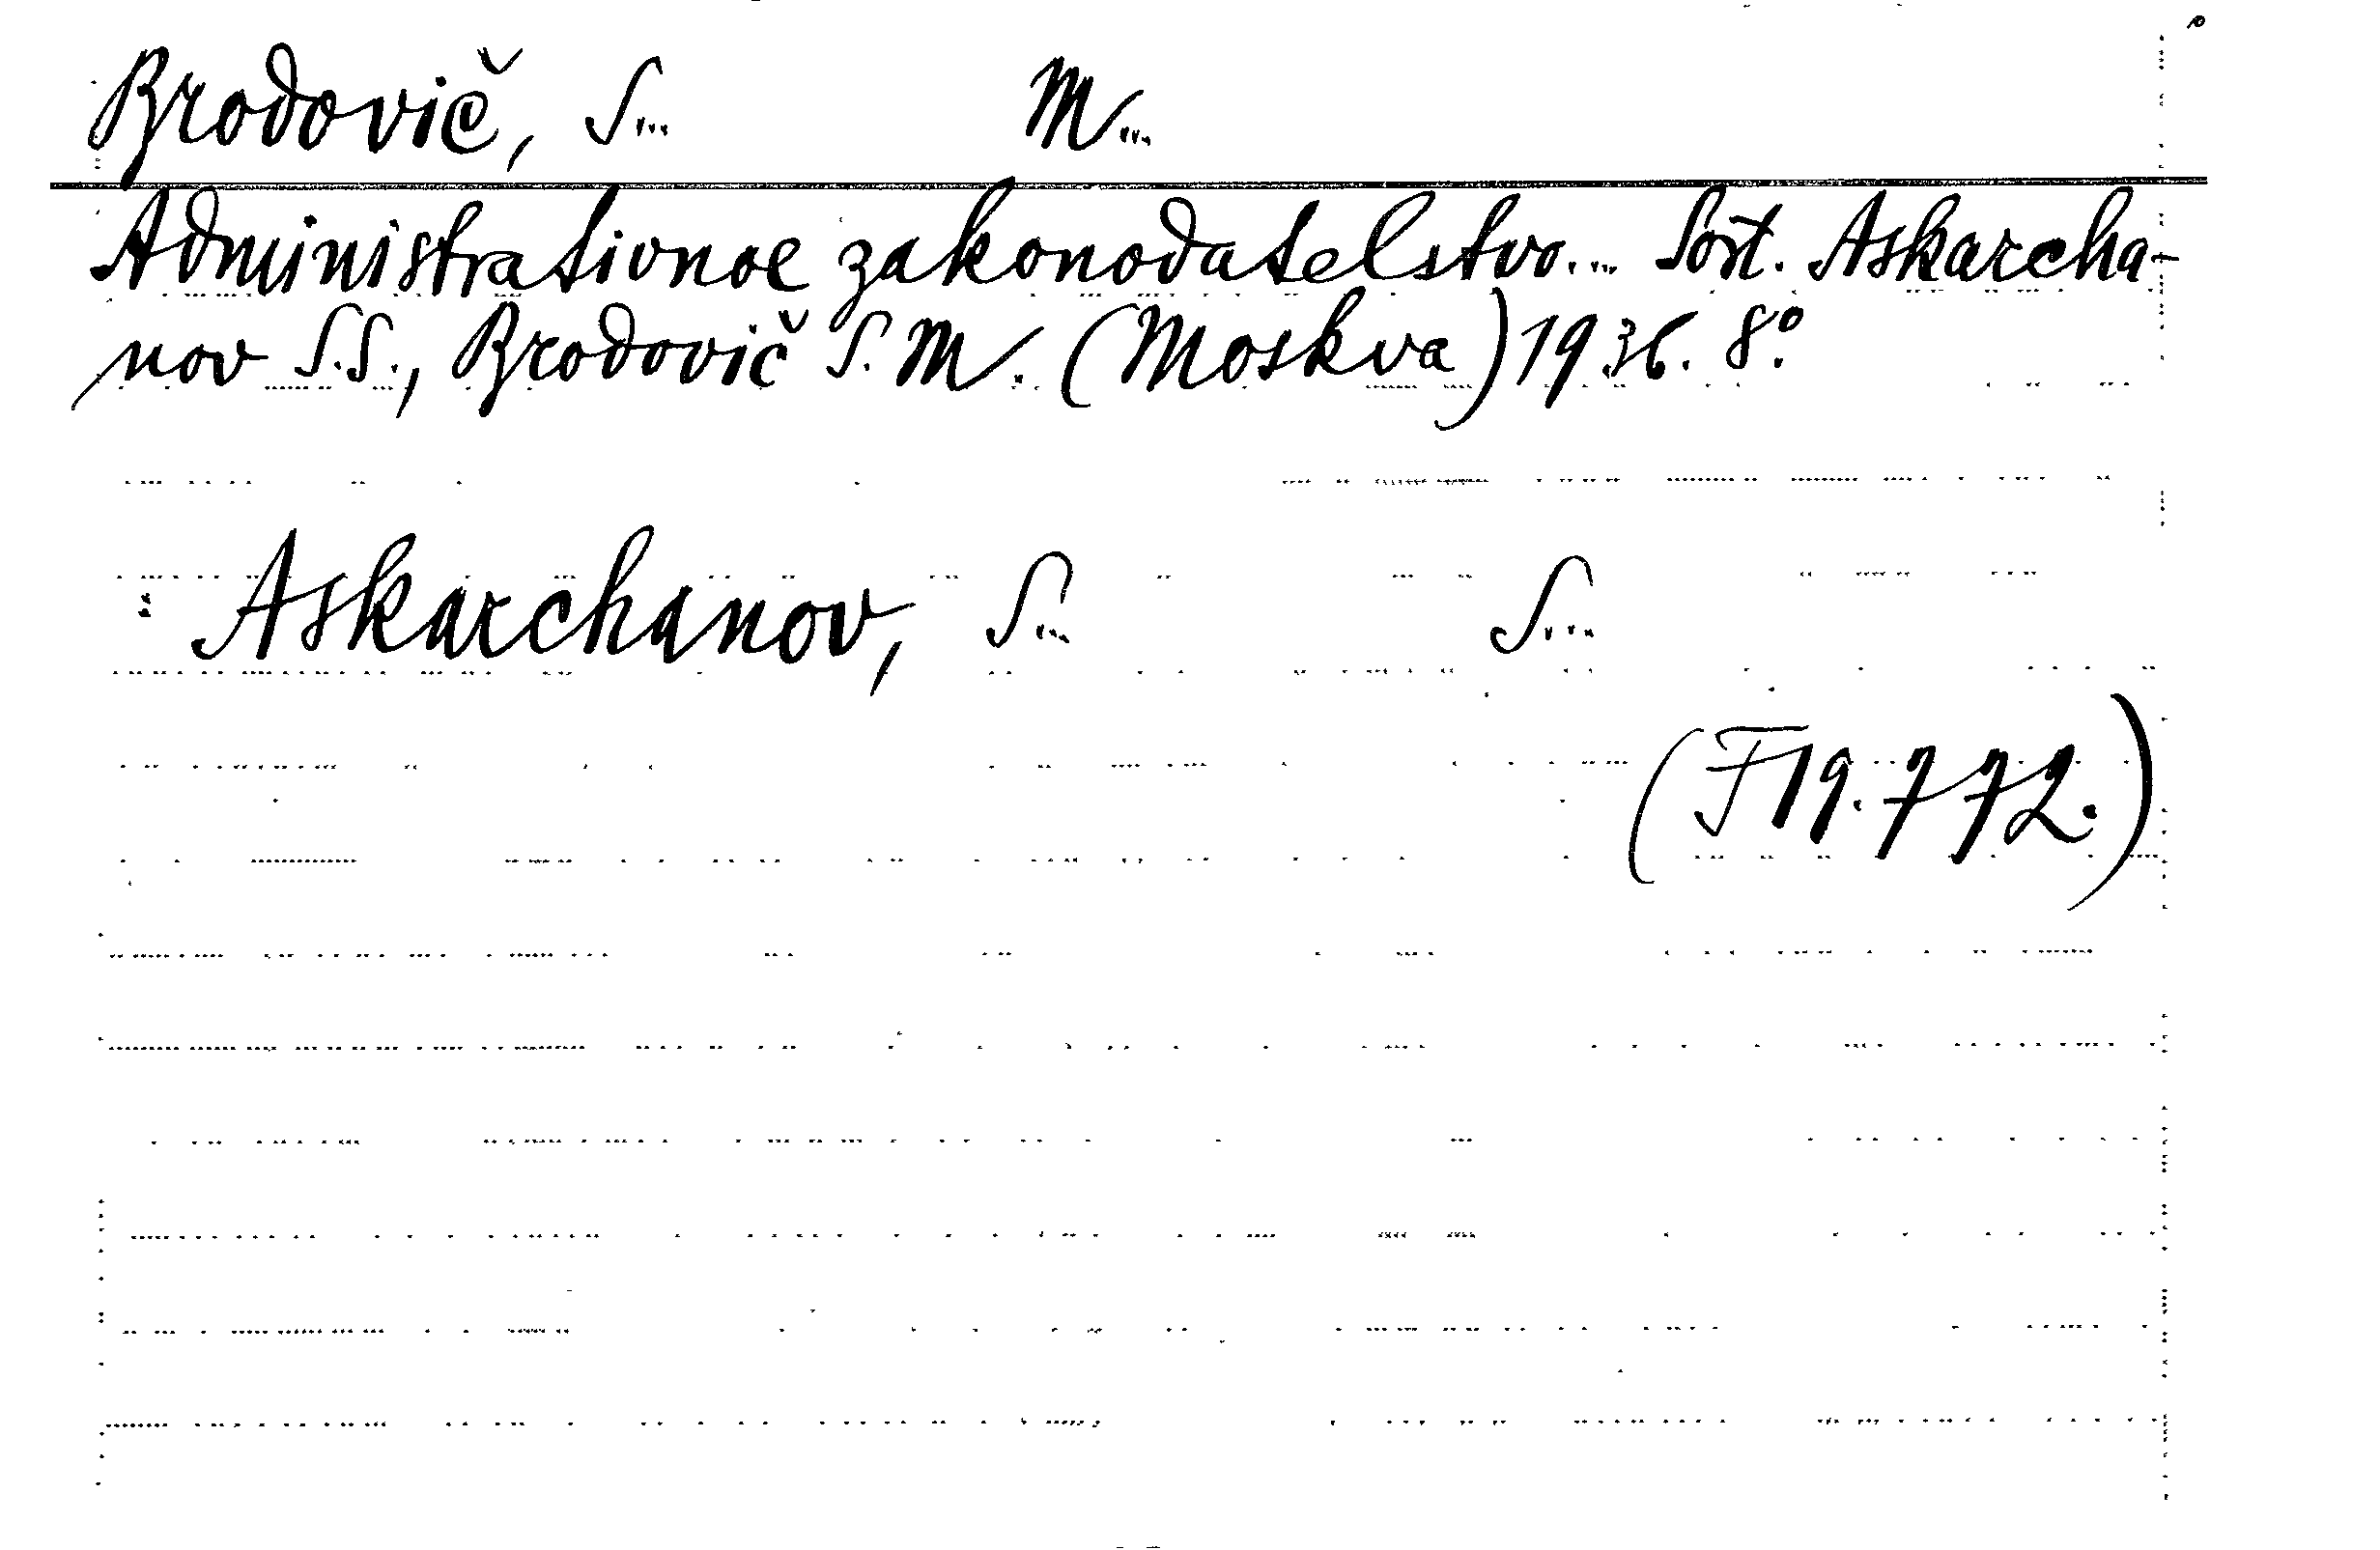 Brodovič, S... M...
Administrativnoe zakonodatelstvo... Sost. Askarcha-
nov S.S., Brodovič S. M. (Moskva) 1936. 8°.
Askarchanov, S... S...
(F19.772.)